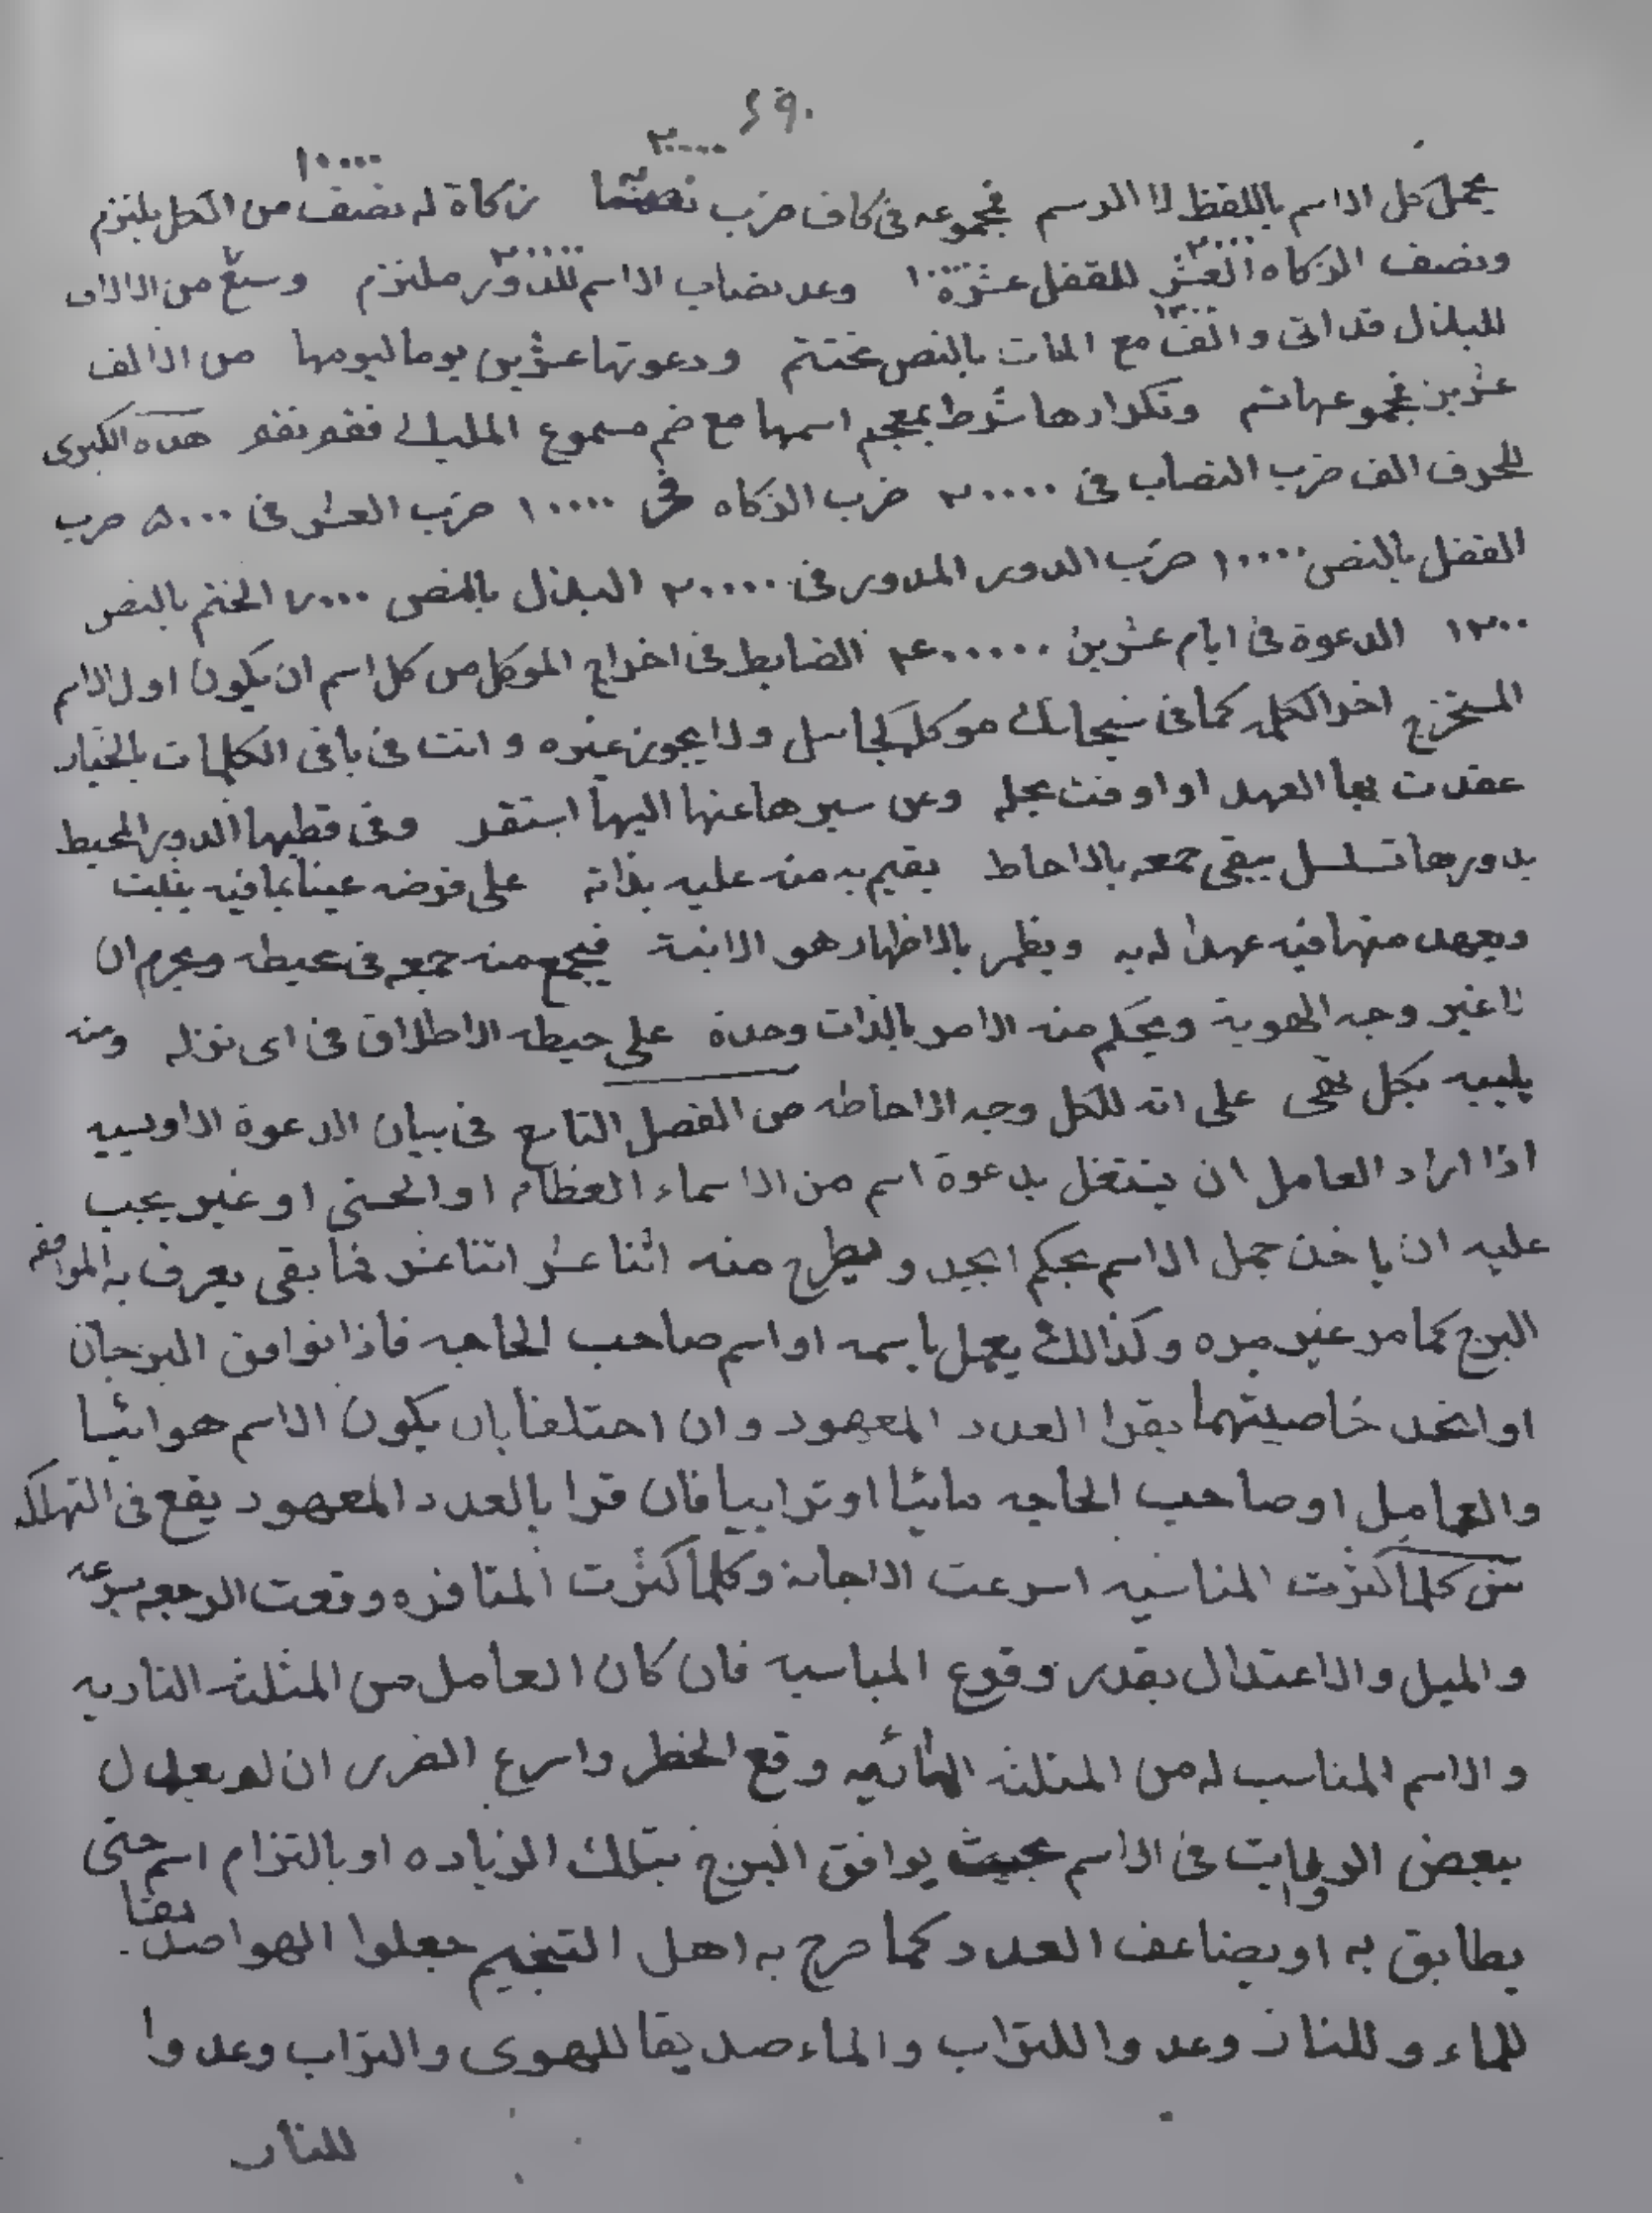 ٢٩٠
٢٠٠٠٠
١٠٠٠٠
يحمل كل الاسم باللفظ لا الرسم فمجموعه فى كاف ضرب زكاة له نصف من الكل يلتزم
ونصف الزكاه العشر للقفل عشره وعد نصاب الاسم للدور ملتزم وسبع من الالاف
للبذل قد اتى والف مع المات بالنص مختتم ودعوتها عشرين يوما ليومها من الالف
عشرين فمجموعها تم وتكرارها شرط بمعجم اسمها مع ضم مسموع المليك ففقم نقم هذه الكبرى
للحرف الف ضرب النصاب فى ٢٠٠٠٠ ضرب الزكاه فى ١٠٠٠٠ ضرب العشر فى ٥٠٠٠ ضرب
القفل بالنص ١٠٠٠٠ ضرب الدور المدور فى ٢٠٠٠٠ البذل بالنص ٧٠٠٠ الختم بالنص
١٢٠٠ الدعوة فى ايام عشرين الضابط فى اخراج الموكل من كل اسم ان يكون اول الاسم
المستخرج اخر الكلمه كما فى سبحانك موكله كجائيل ولا يجوز غيره وانت فى باقى الكلمات بالخيار
عقدت بها العهد او اوفت بحله وعن سيرها عنها اليها استقر وفى قطبها الدور المحيط
بدورها تسلسل يبقى جمعه بالاحاط يقيم به منه عليه بذاته على فرضه عينا بما فيه يثبت
ويعهد منها فيه عهدا له به ويظهر بالاظهار هو الانية فيجمع منه جمعه فى محيطه ويحرم ان
لا غير وجه الهوية ويحكم منه الامر بالذات وحدة على حيطه الاطلاق فى اى نزله ومنه
يلبيه بكل على انه للكل وجه الاحاطه من الفصل التاسع فى بيان الدعوة الاويسيه
اذا اراد العامل ان يشتغل بدعوة اسم من الاسماء العظام او الحسنى او غير يجب
عليه ان ياخذ جمل الاسم بحكم ابجد ويطرح منه اثنا عشر اثنا عشر فما بقى يعرف به الموافقه
البرج كما مر غير مره وكذالك يعمل باسمه او اسم صاحب الحاجه فاذا توافق البرجان
او اتحد خاصيتهما يقرا العدد المعهود وان اختلفا بان يكون الاسم هوائيا
والعامل او صاحب الحاجه مائيا او ترابيا فان قرا بالعدد المعهود يقع فى التهلكه
كلما كثرت المناسبه اسرعت الاجابة وكلما كثرت المنافره وقعت الرجعه بسرعه
والميل والاعتدال بقدر وقوع المناسبه فان كان العامل من المثلثة الناريه
والاسم المناسب له من المثلثة المائيه وقع الخطر واسرع الضرر ان لم يعدل
ببعض الروايات فى الاسم بحيث يوافق البرج بتلك الزياده او بالتزام اسم حتى
يطابق به او يضاعف العدد كما صرح به اهل التنجيم جعلوا الهوا صديقا
للماء وللنار وعدوا للتراب والماء صديقا للهوى والتراب وعدوا
للنار